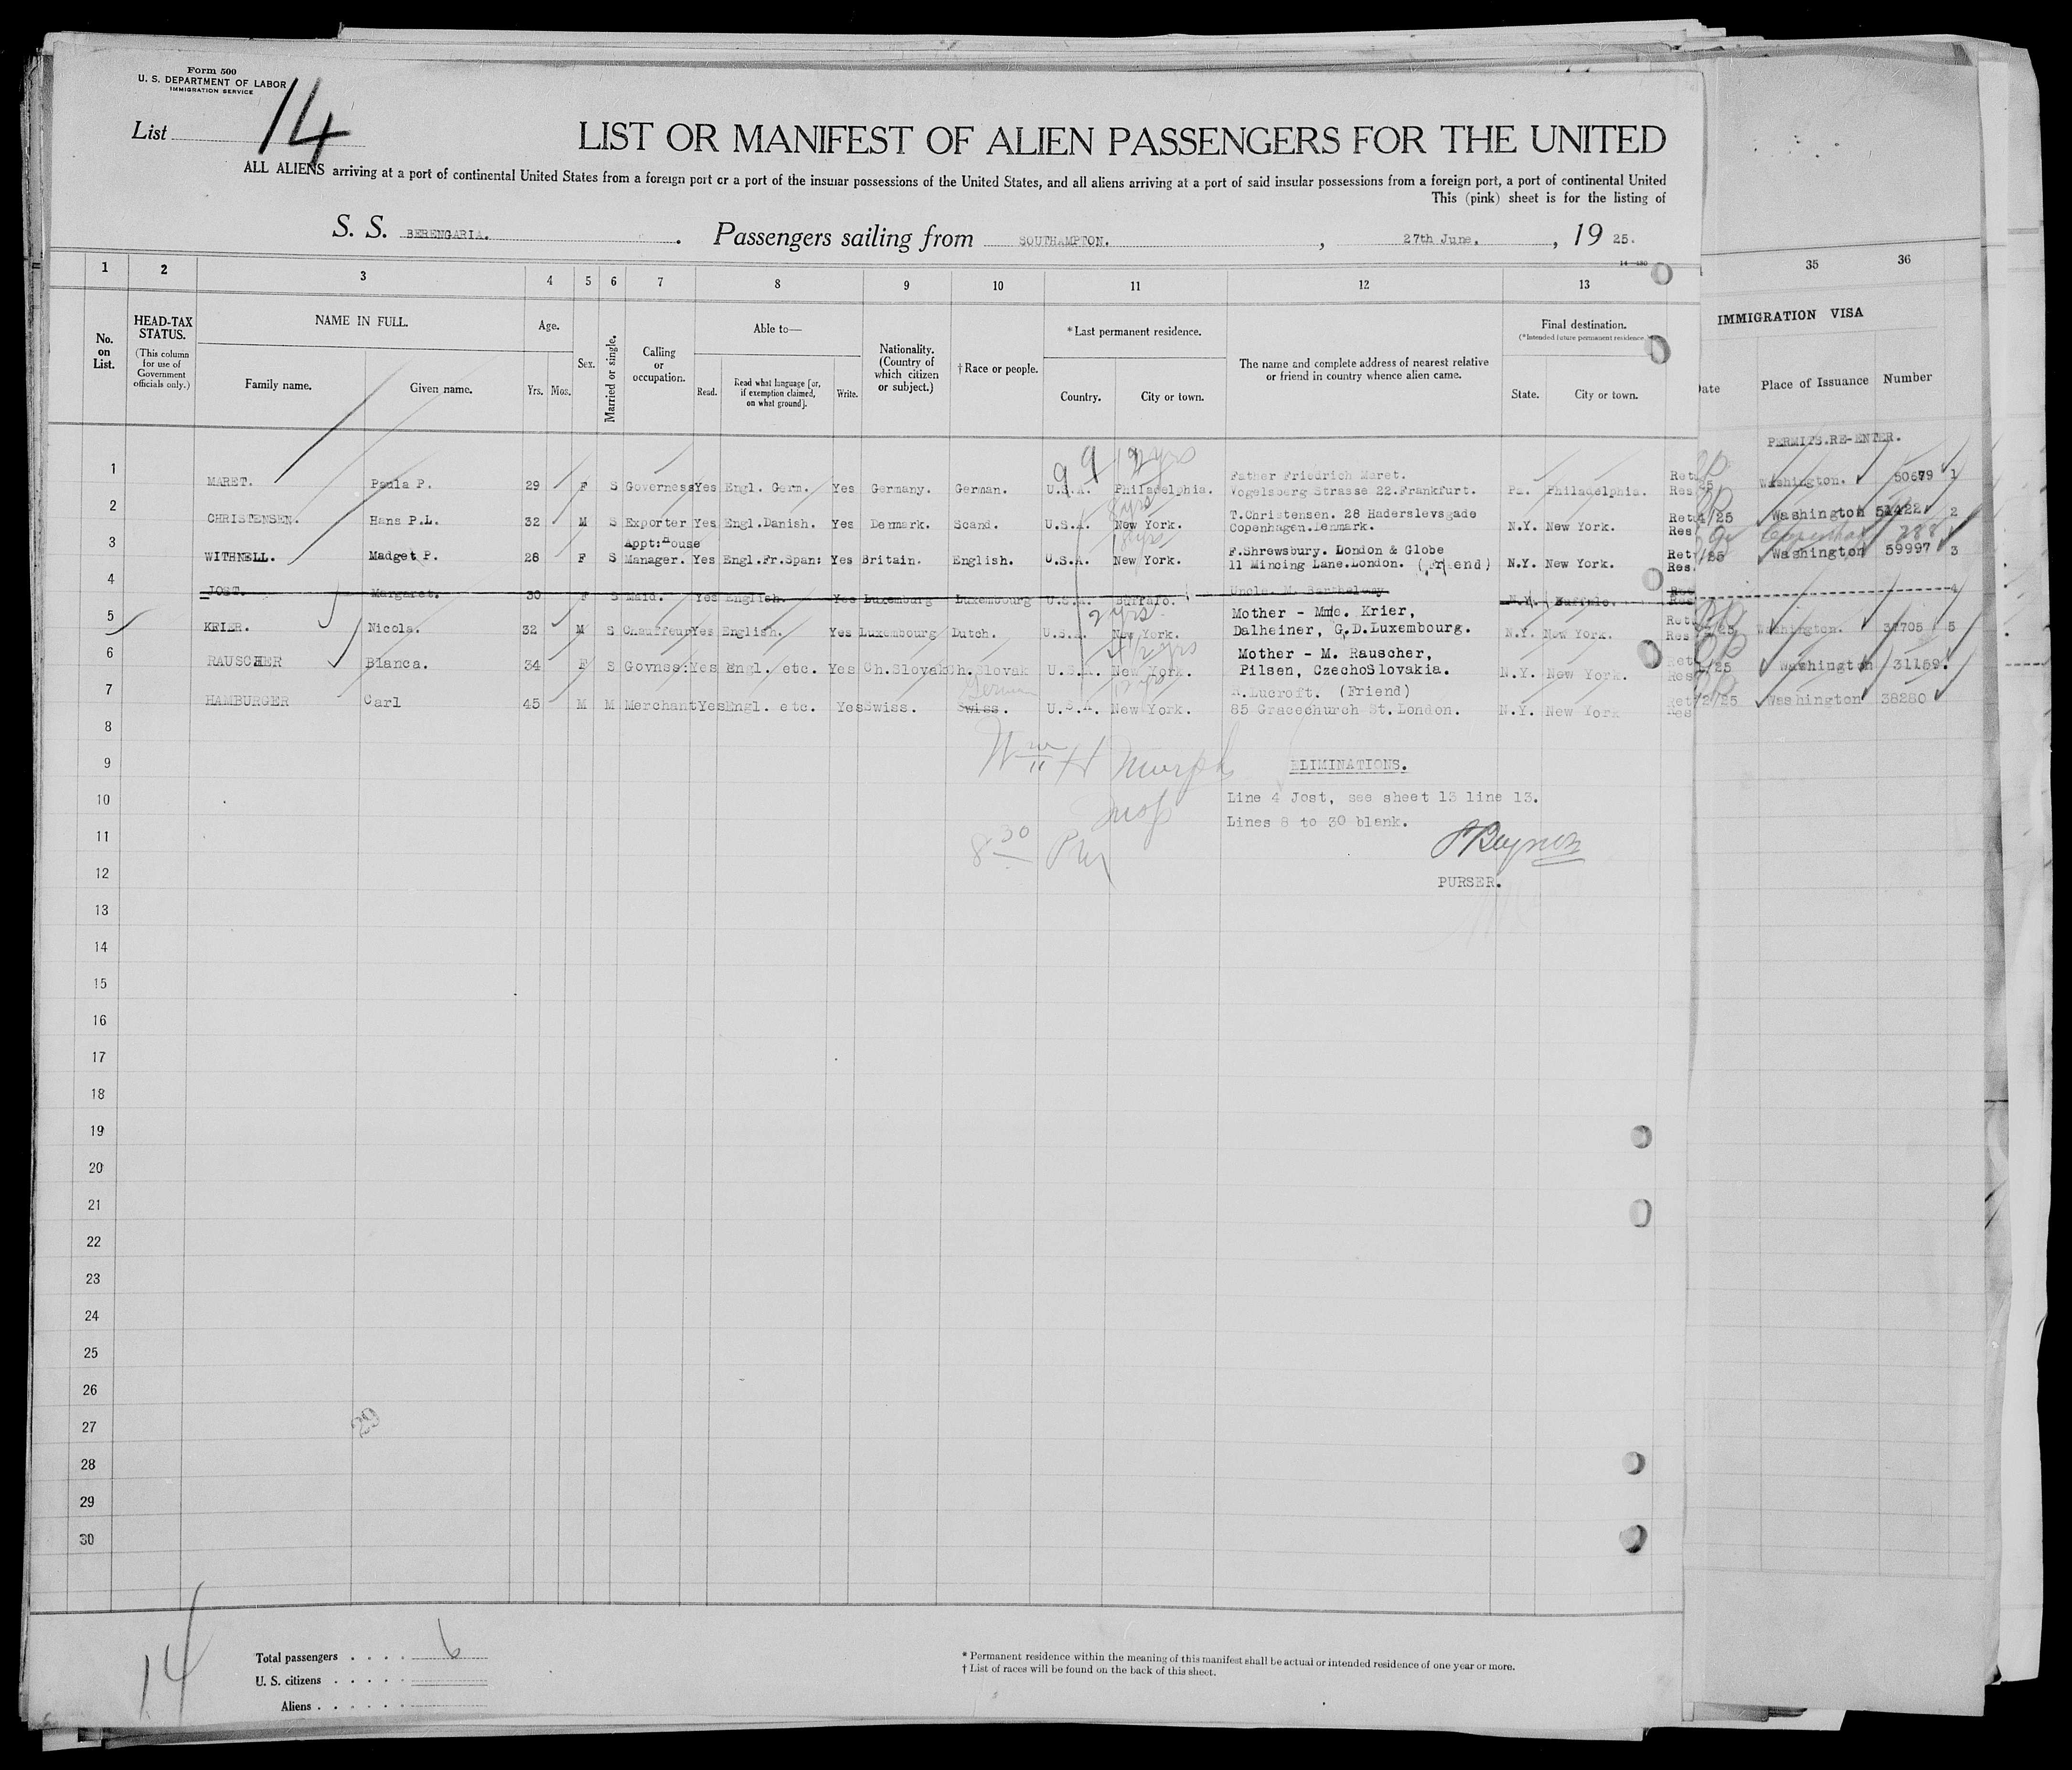 Form 500
U. S. DEPARTMENT OF LABOR
IMMIGRATION SERVICE
List 14
LIST OR MANIFEST OF ALIEN PASSENGERS FOR THE UNITED
ALL ALIENS arriving at a port of continental United States from a foreign port or a port of the insular possessions of the United States, and all aliens arriving at a port of said insular possessions from a foreign port, a port of continental United
This (pink) sheet is for the listing of
S. S. BERENGARIA. Passengers sailing from SOUTHAMPTON. , 27th June. , 19 25.
1 2 3 4 5 6 7 8 9 10 11 12 13 35 36
No. on List.
HEAD-TAX STATUS.
(This column for use of Government officials only.)
NAME IN FULL.
Family name. Given name.
Age.
Yrs. Mos.
Sex.
Married or single.
Calling or occupation.
Able to—
Read. Read what language [or, if exemption claimed, on what ground]. Write.
Nationality. (Country of which citizen or subject.)
†Race or people.
*Last permanent residence.
Country. City or town.
The name and complete address of nearest relative or friend in country whence alien came.
Final destination.
(*Intended future permanent residence.)
State. City or town.
IMMIGRATION VISA
Date Place of Issuance Number
PERMITS.RE-ENTER.
9 9 12 yrs
Father Friedrich Maret.
1 MARET. Paula P. 29 F S Governess Yes Engl. Germ. Yes Germany. German. U.S.A. Philadelphia. Vogelsberg Strasse 22.Frankfurt. Pa. Philadelphia. Washington. 50679 1
8 yrs
T.Christensen. 28 Haderslevsgade
2 CHRISTENSEN. Hans P.L. 32 M S Exporter Yes Engl.Danish. Yes Denmark. Scand. U.S.A. New York. Copenhagen.Denmark. N.Y. New York. Washington 51422 2
Appt:House
F.Shrewsbury. London & Globe
3 WITHNELL. Madget P. 28 F S Manager. Yes Engl.Fr.Span: Yes Britain. English. U.S.A. New York. 11 Mincing Lane.London. (Friend) N.Y. New York. Washington 59997 3
4 JOST. Margaret. 30 F S Maid. Yes English. Yes Luxemburg Luxembourg U.S.A. Buffalo. Uncle. M. Barthelemy N.Y. Buffalo. 4
2 yrs
Mother - Mme. Krier,
5 KRIER. Nicola. 32 M S Chauffeur Yes English. Yes Luxembourg Dutch. U.S.A. New York. Dalheiner, G.D.Luxembourg. N.Y. New York. Washington. 37705 5
Mother - M. Rauscher,
6 RAUSCHER Blanca. 34 F S Govness: Yes Engl. etc. Yes Ch.Slovak Ch.Slovak U.S.A. New York. Pilsen, CzechoSlovakia. N.Y. New York. Washington 31159.
German
R.Lucroft. (Friend)
7 HAMBURGER Carl 45 M M Merchant Yes Engl. etc. Yes Swiss. Swiss. U.S.A. New York. 85 Gracechurch St.London. N.Y. New York Washington 38280
8
Wm H Murphy
9 ELIMINATIONS.
10 Line 4 Jost, see sheet 13 line 13.
Insp
Lines 8 to 30 blank.
11
8 30 PM
12 PURSER.
13
14
15
16
17
18
19
20
21
22
23
24
25
26
27
29
28
29
30
14
Total passengers . . . . 6
U. S. citizens . . . . .
Aliens . . . . . .
* Permanent residence within the meaning of this manifest shall be actual or intended residence of one year or more.
† List of races will be found on the back of this sheet.